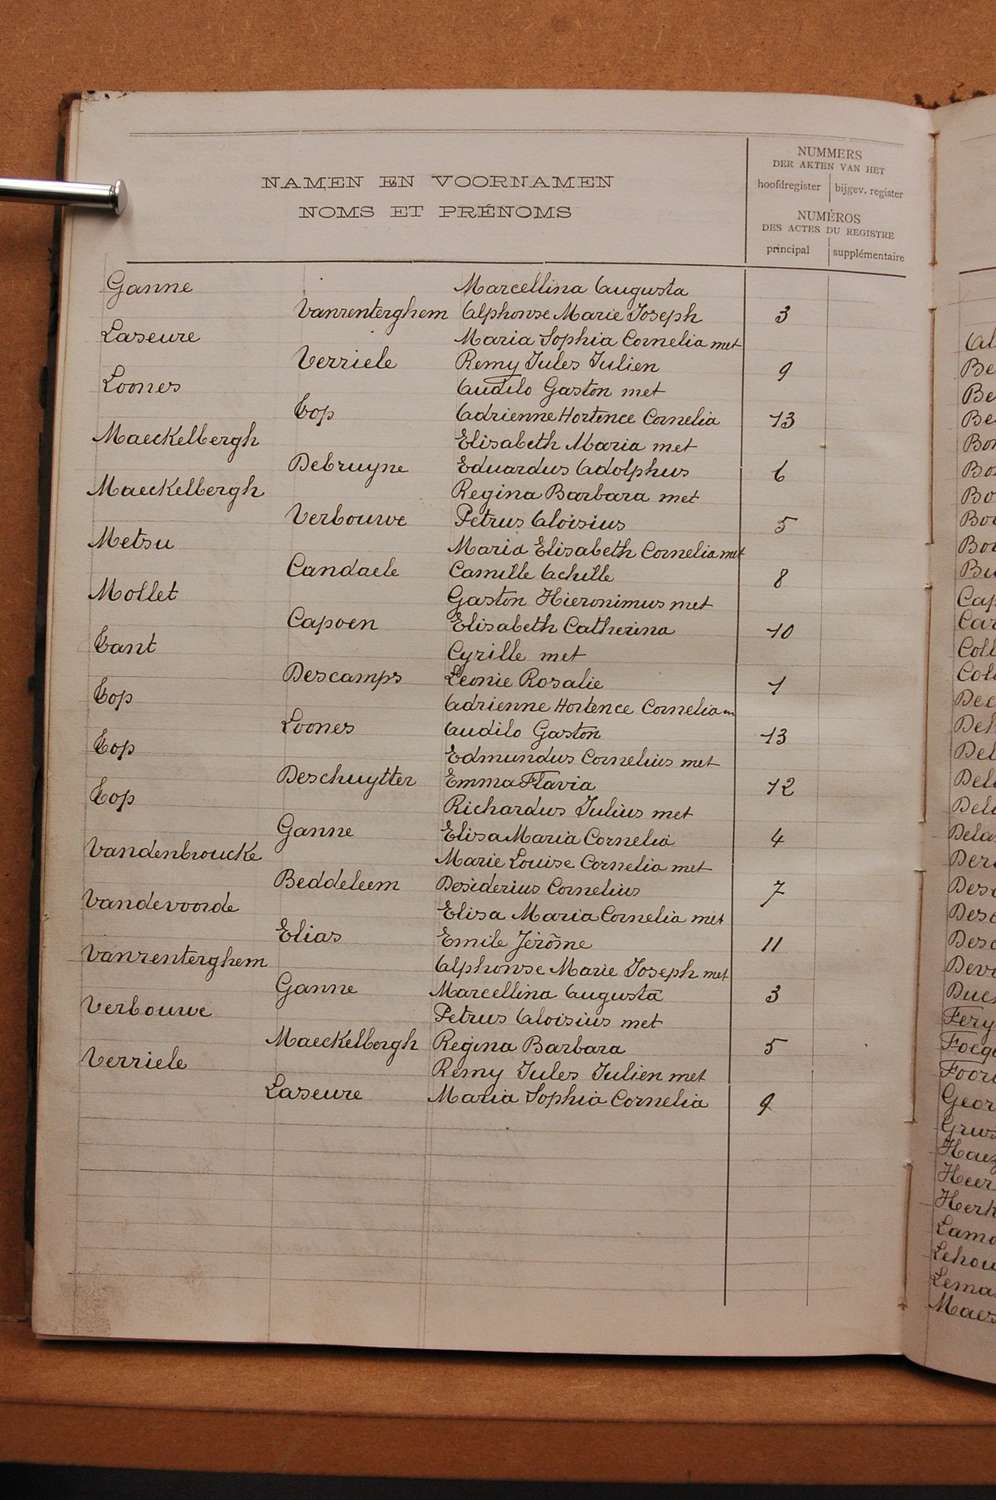 NAMEN EN VOORNAMEN
NOMS ET PRÉNOMS
NUMMERS
DER AKTEN VAN HET
hoofdregister bijgev. register
NUMÉROS
DES ACTES DU REGISTRE
principal supplémentaire
Ganne Marcellina Augusta
Vanrenterghem Alphonse Marie Joseph 3
Laseure Maria Sophia Cornelia met
Verriele Remy Jules Julien 9
Loones Audilo Gaston met
Top Adrienne Hortence Cornelia 13
Maeckelbergh Elisabeth Maria met
Debruyne Eduardus Adolphus 6
Maeckelbergh Regina Barbara met
Verbouwe Petrus Aloisius 5
Metsu Maria Elisabeth Cornelia met
Candaele Camille Achille 8
Mollet Gaston Hieronimus met
Capoen Elisabeth Catherina 10
Tant Cyrille met
Descamps Leonie Rosalie 1
Top Adrienne Hortence Cornelia m
Loones Audilo Gaston 13
Top Edmundus Cornelius met
Deschuytter Emma Flavia 12
Top Richardus Julius met
Ganne Elisa Maria Cornelia 4
Vandenbroucke Marie Louise Cornelia met
Beddeleem Desiderius Cornelius 7
Vandevoorde Elisa Maria Cornelia met
Elias Emile Jérôme 11
Vanrenterghem Alphonse Marie Joseph met
Ganne Marcellina Augusta 3
Verbouwe Petrus Aloisius met
Maeckelbergh Regina Barbara 5
Verriele Remy Jules Julien met
Laseure Maria Sophia Cornelia 9